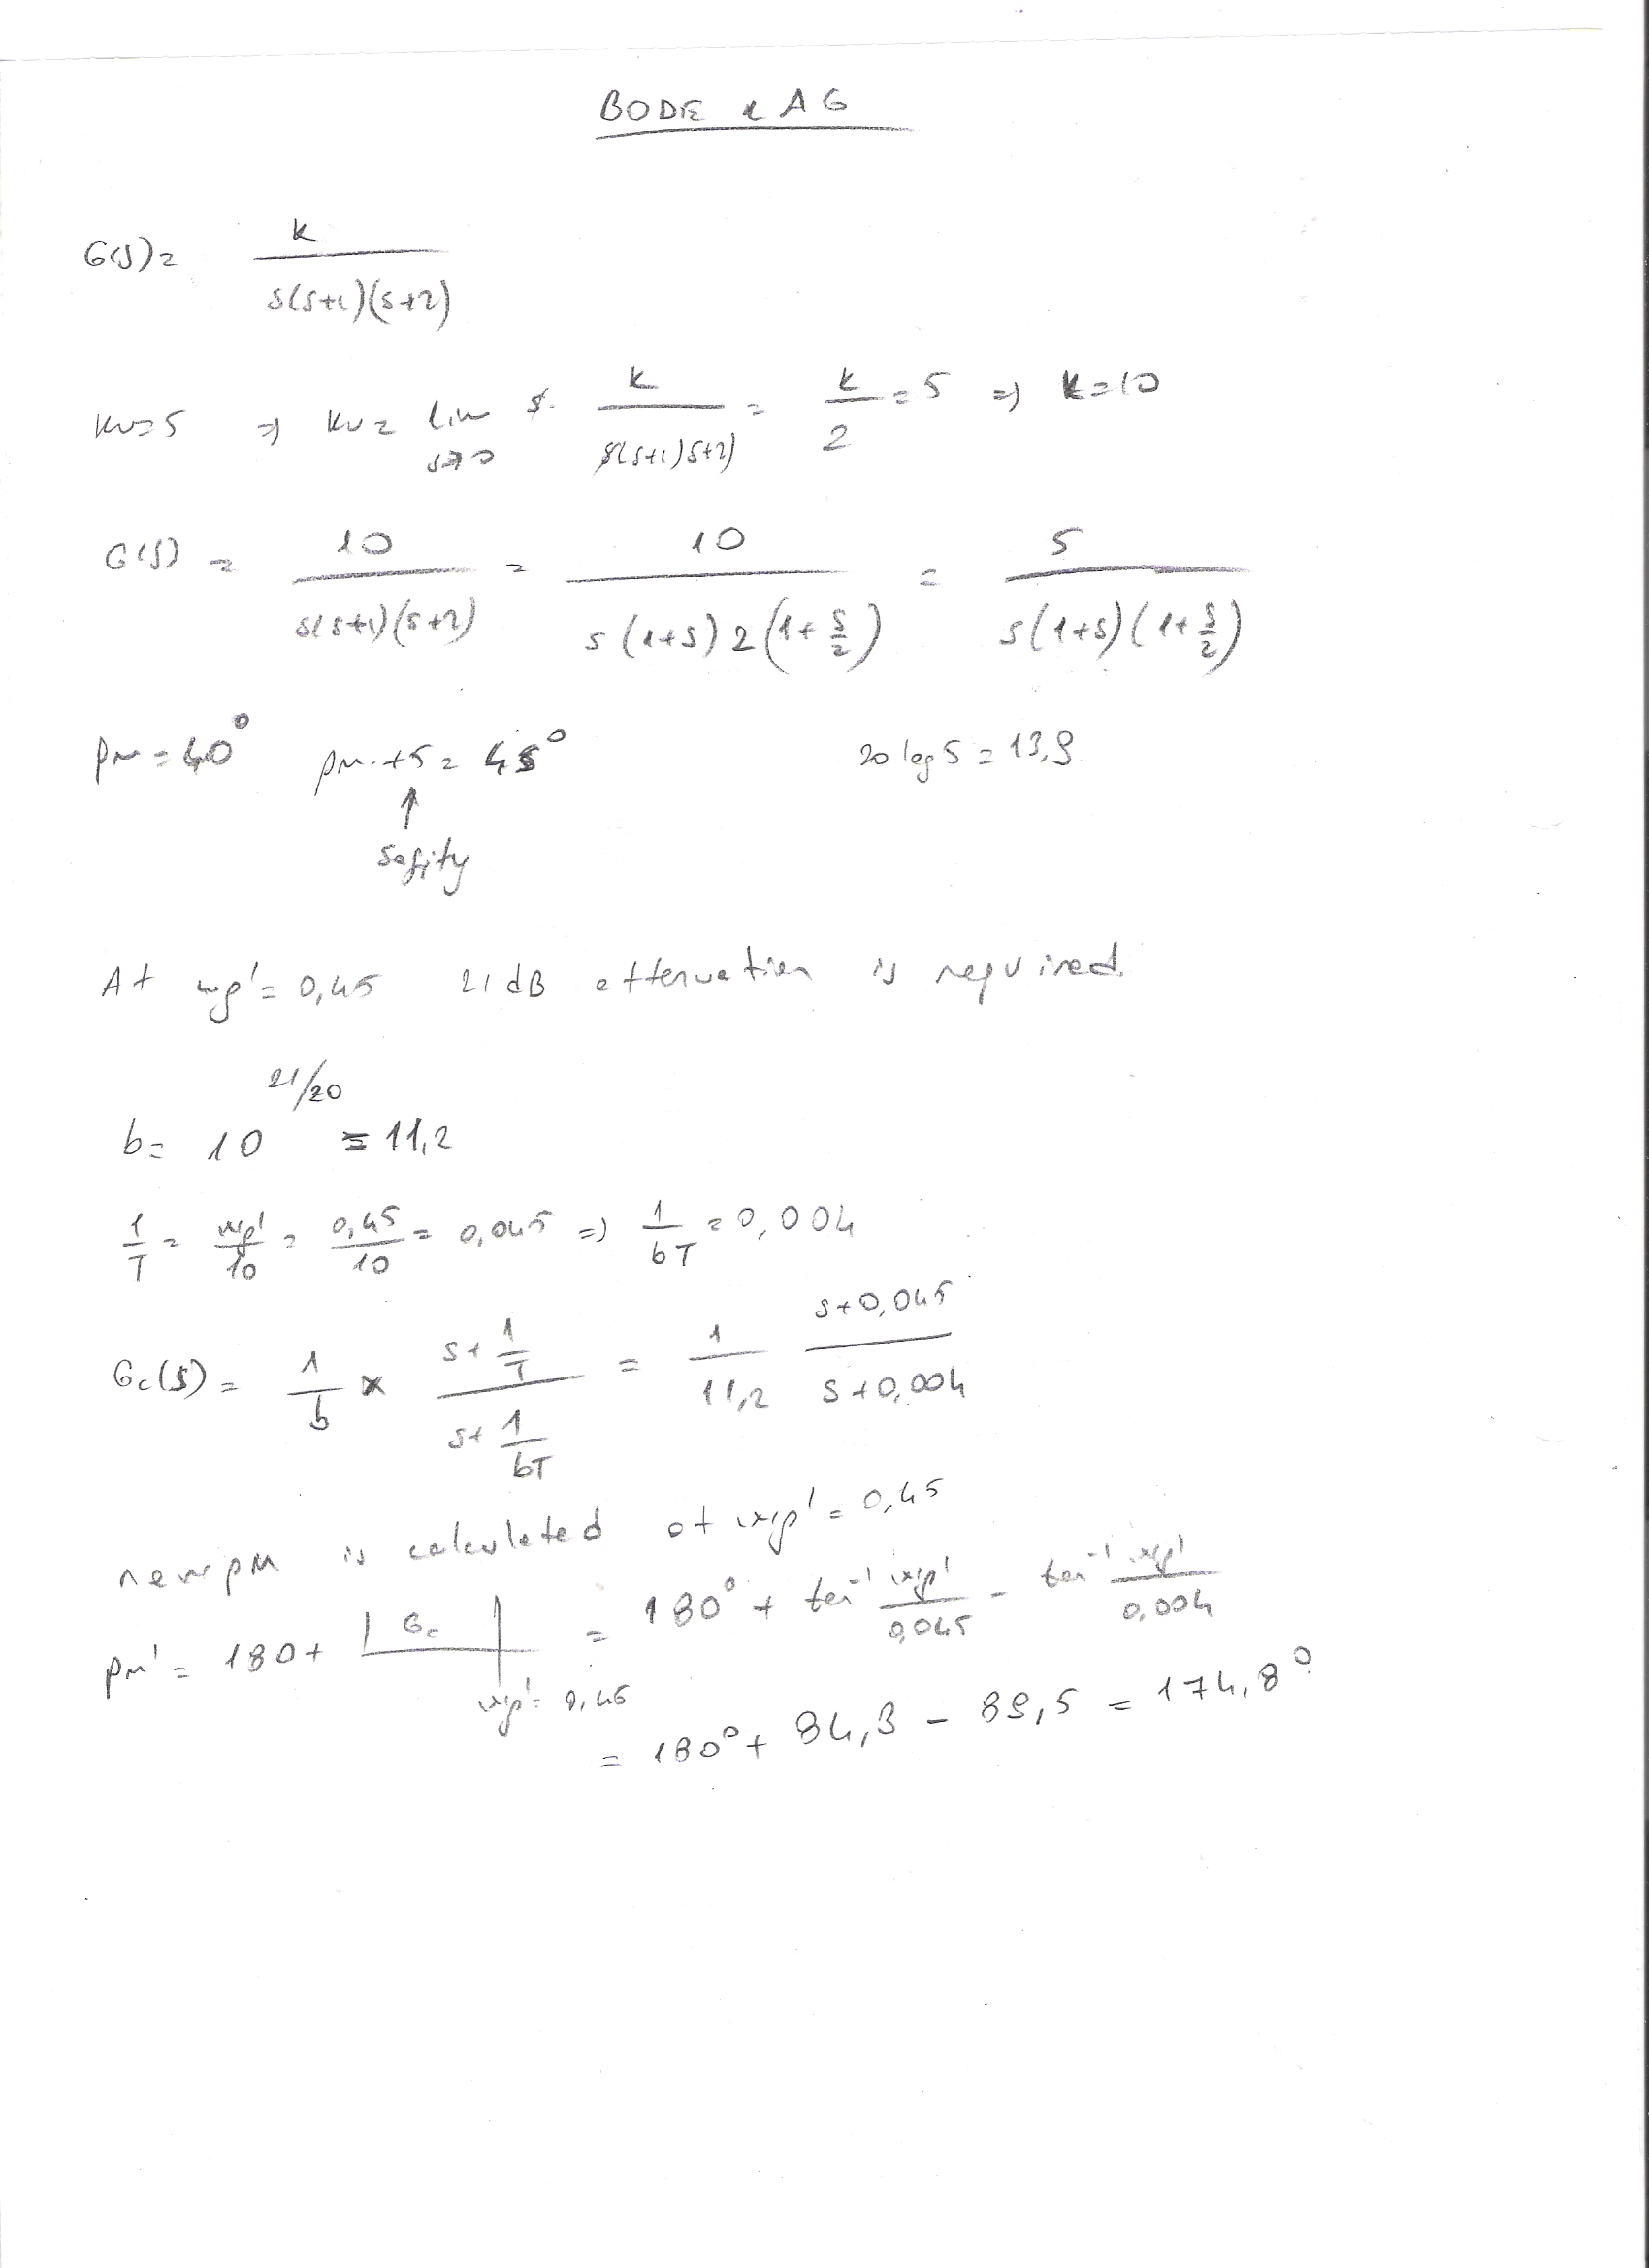 BODE LAG
G(s) = K / s(s+1)(s+2)
Kv=5 => Kv = lim s→0 s. K / s(s+1)(s+2) = K/2 = 5 => K=10
G(s) = 10 / s(s+1)(s+2) = 10 / s(1+s)2(1+s/2) = 5 / s(1+s)(1+s/2)
PM = 40° PM+5 = 45° 20 log 5 = 13,9
↑
safity
At wp' = 0,45 21 dB attenuation is required.
b = 10^21/20 = 11,2
1/T = wp'/10 = 0,45/10 = 0,045 => 1/bT = 0,004
Gc(s) = 1/b x (s + 1/T) / (s + 1/bT) = 1/11,2 (s+0,045) / (s+0,004)
new PM is calculated at wp' = 0,45
PM' = 180 + ∠Gc | wp' = 0,45 = 180° + tan⁻¹ wp'/0,045 - tan⁻¹ wp'/0,004
= 180° + 84,3 - 89,5 = 174,8°